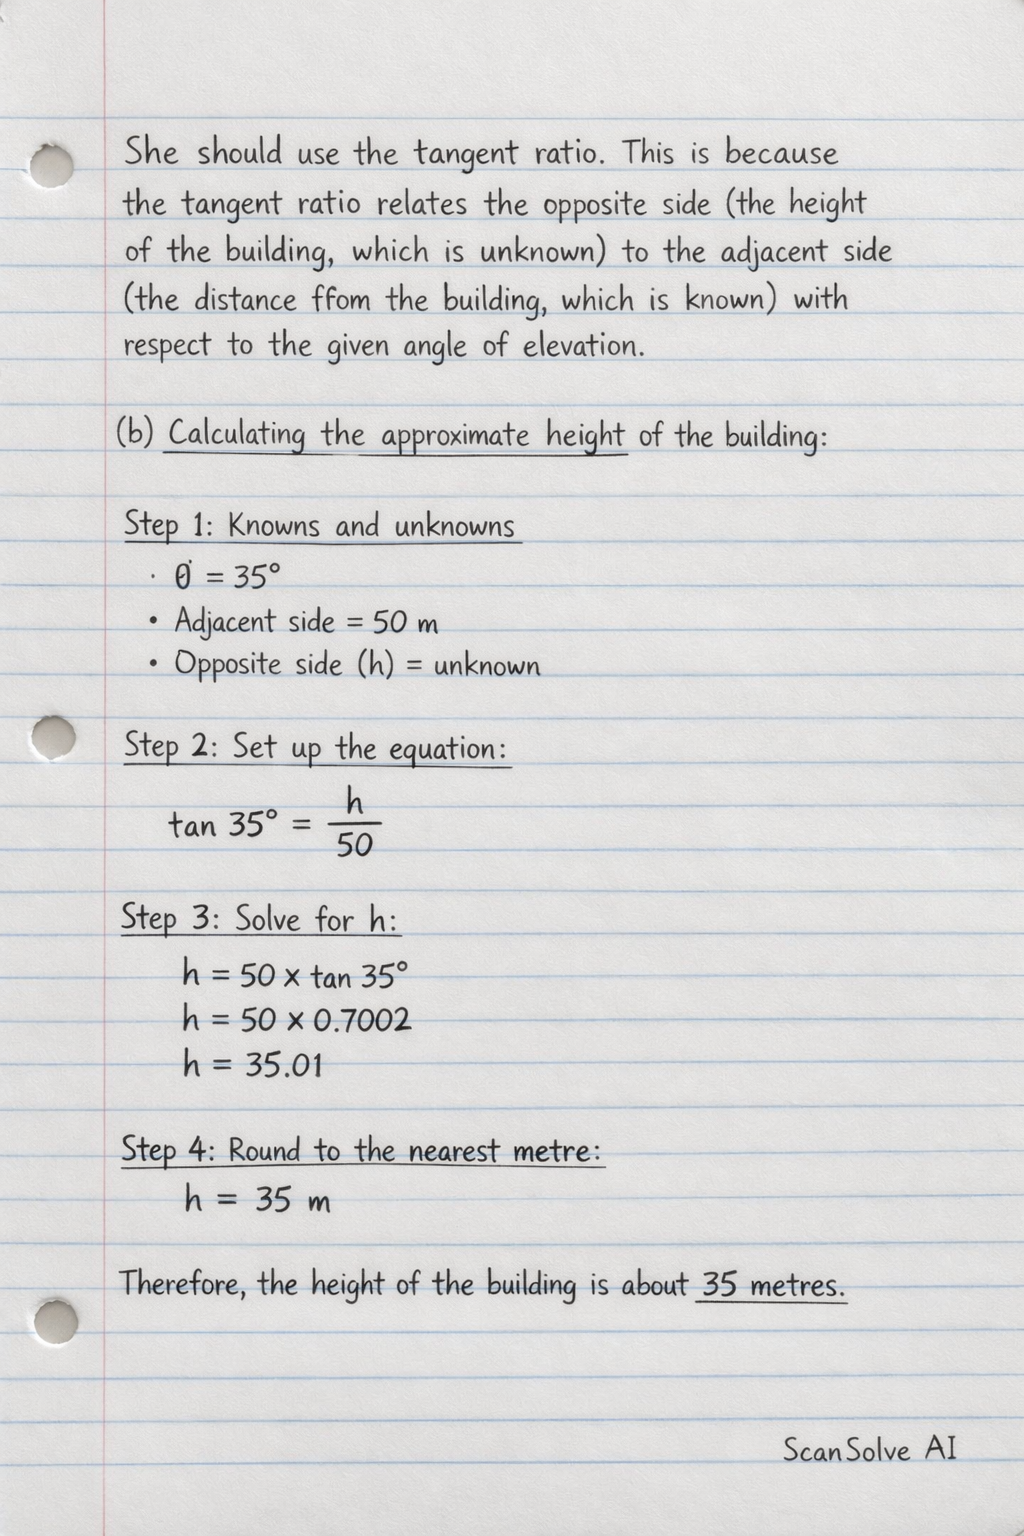 She should use the tangent ratio. This is because
the tangent ratio relates the opposite side (the height
of the building, which is unknown) to the adjacent side
(the distance ffom the building, which is known) with
respect to the given angle of elevation.
(b) Calculating the approximate height of the building:
Step 1: Knowns and unknowns
· θ = 35°
• Adjacent side = 50 m
• Opposite side (h) = unknown
Step 2: Set up the equation:
tan 35° = h/50
Step 3: Solve for h:
h = 50 × tan 35°
h = 50 × 0.7002
h = 35.01
Step 4: Round to the nearest metre:
h = 35 m
Therefore, the height of the building is about 35 metres.
ScanSolve AI